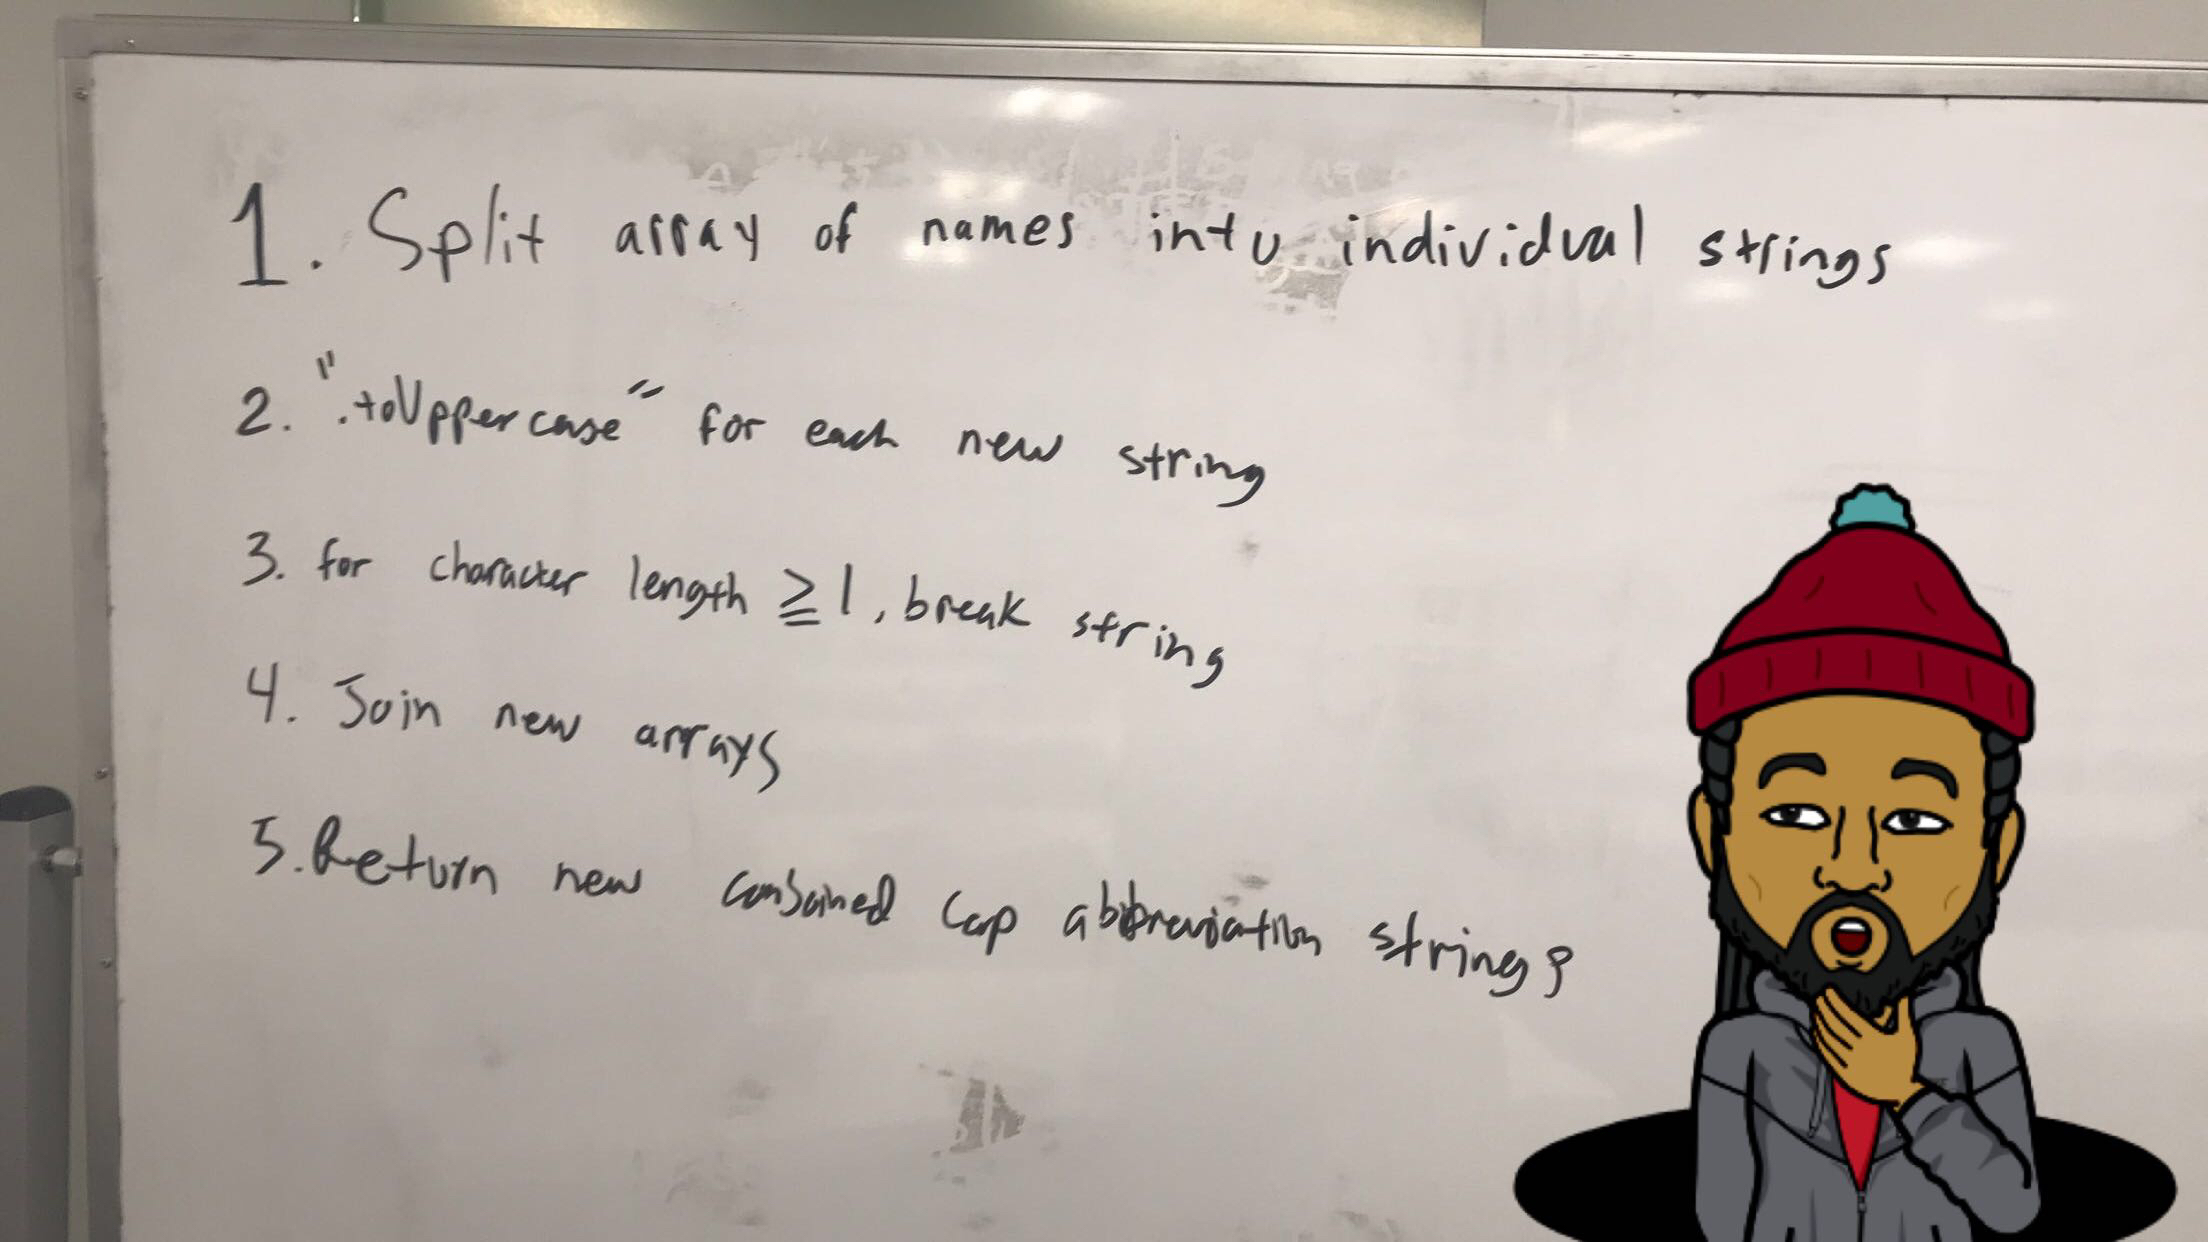 1. Split array of names into individual strings
2. ".toUppercase" for each new string
3. for character length ≥ 1, break string
4. Join new arrays
5. Return new combined cap abbreviation strings